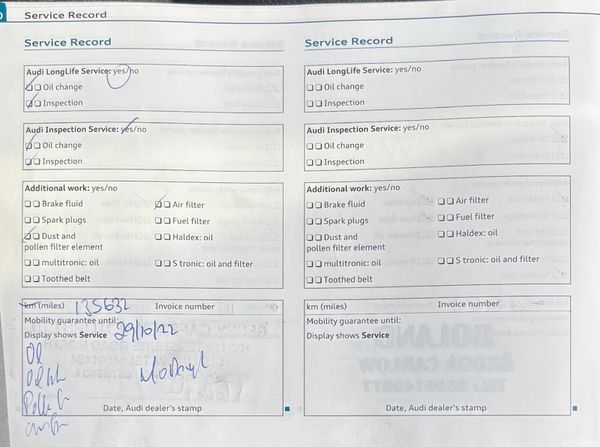 Service Record
Service Record
Audi LongLife Service: yes/no
Oil change
Inspection
Audi Inspection Service: yes/no
Oil change
Inspection
Additional work: yes/no
Brake fluid
Air filter
Spark plugs
Fuel filter
Dust and
pollen filter element
Haldex: oil
multitronic: oil
S tronic: oil and filter
Toothed belt
km (miles) 135632 Invoice number
Mobility guarantee until:
Display shows Service 29/10/22
Oil
Date, Audi dealer's stamp
Service Record
Audi LongLife Service: yes/no
Oil change
Inspection
Audi Inspection Service: yes/no
Oil change
Inspection
Additional work: yes/no
Brake fluid
Air filter
Spark plugs
Fuel filter
Dust and
pollen filter element
Haldex: oil
multitronic: oil
S tronic: oil and filter
Toothed belt
km (miles) Invoice number
Mobility guarantee until:
Display shows Service
Date, Audi dealer's stamp